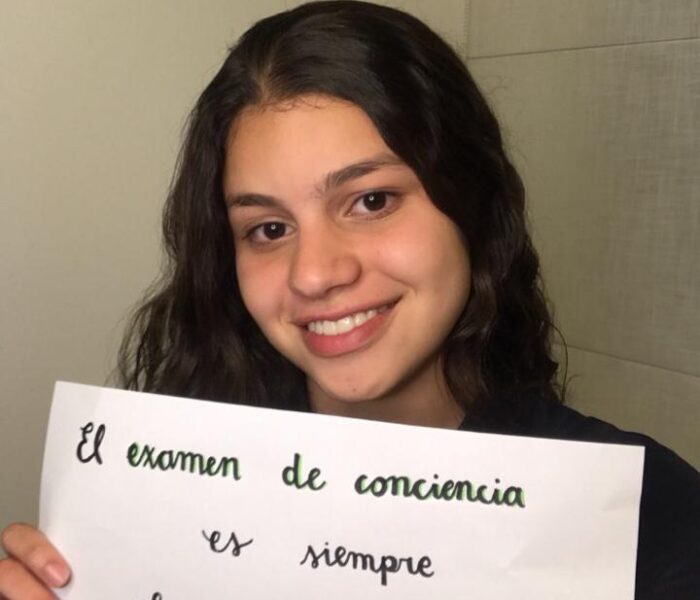 El examen de conciencia
es siempre